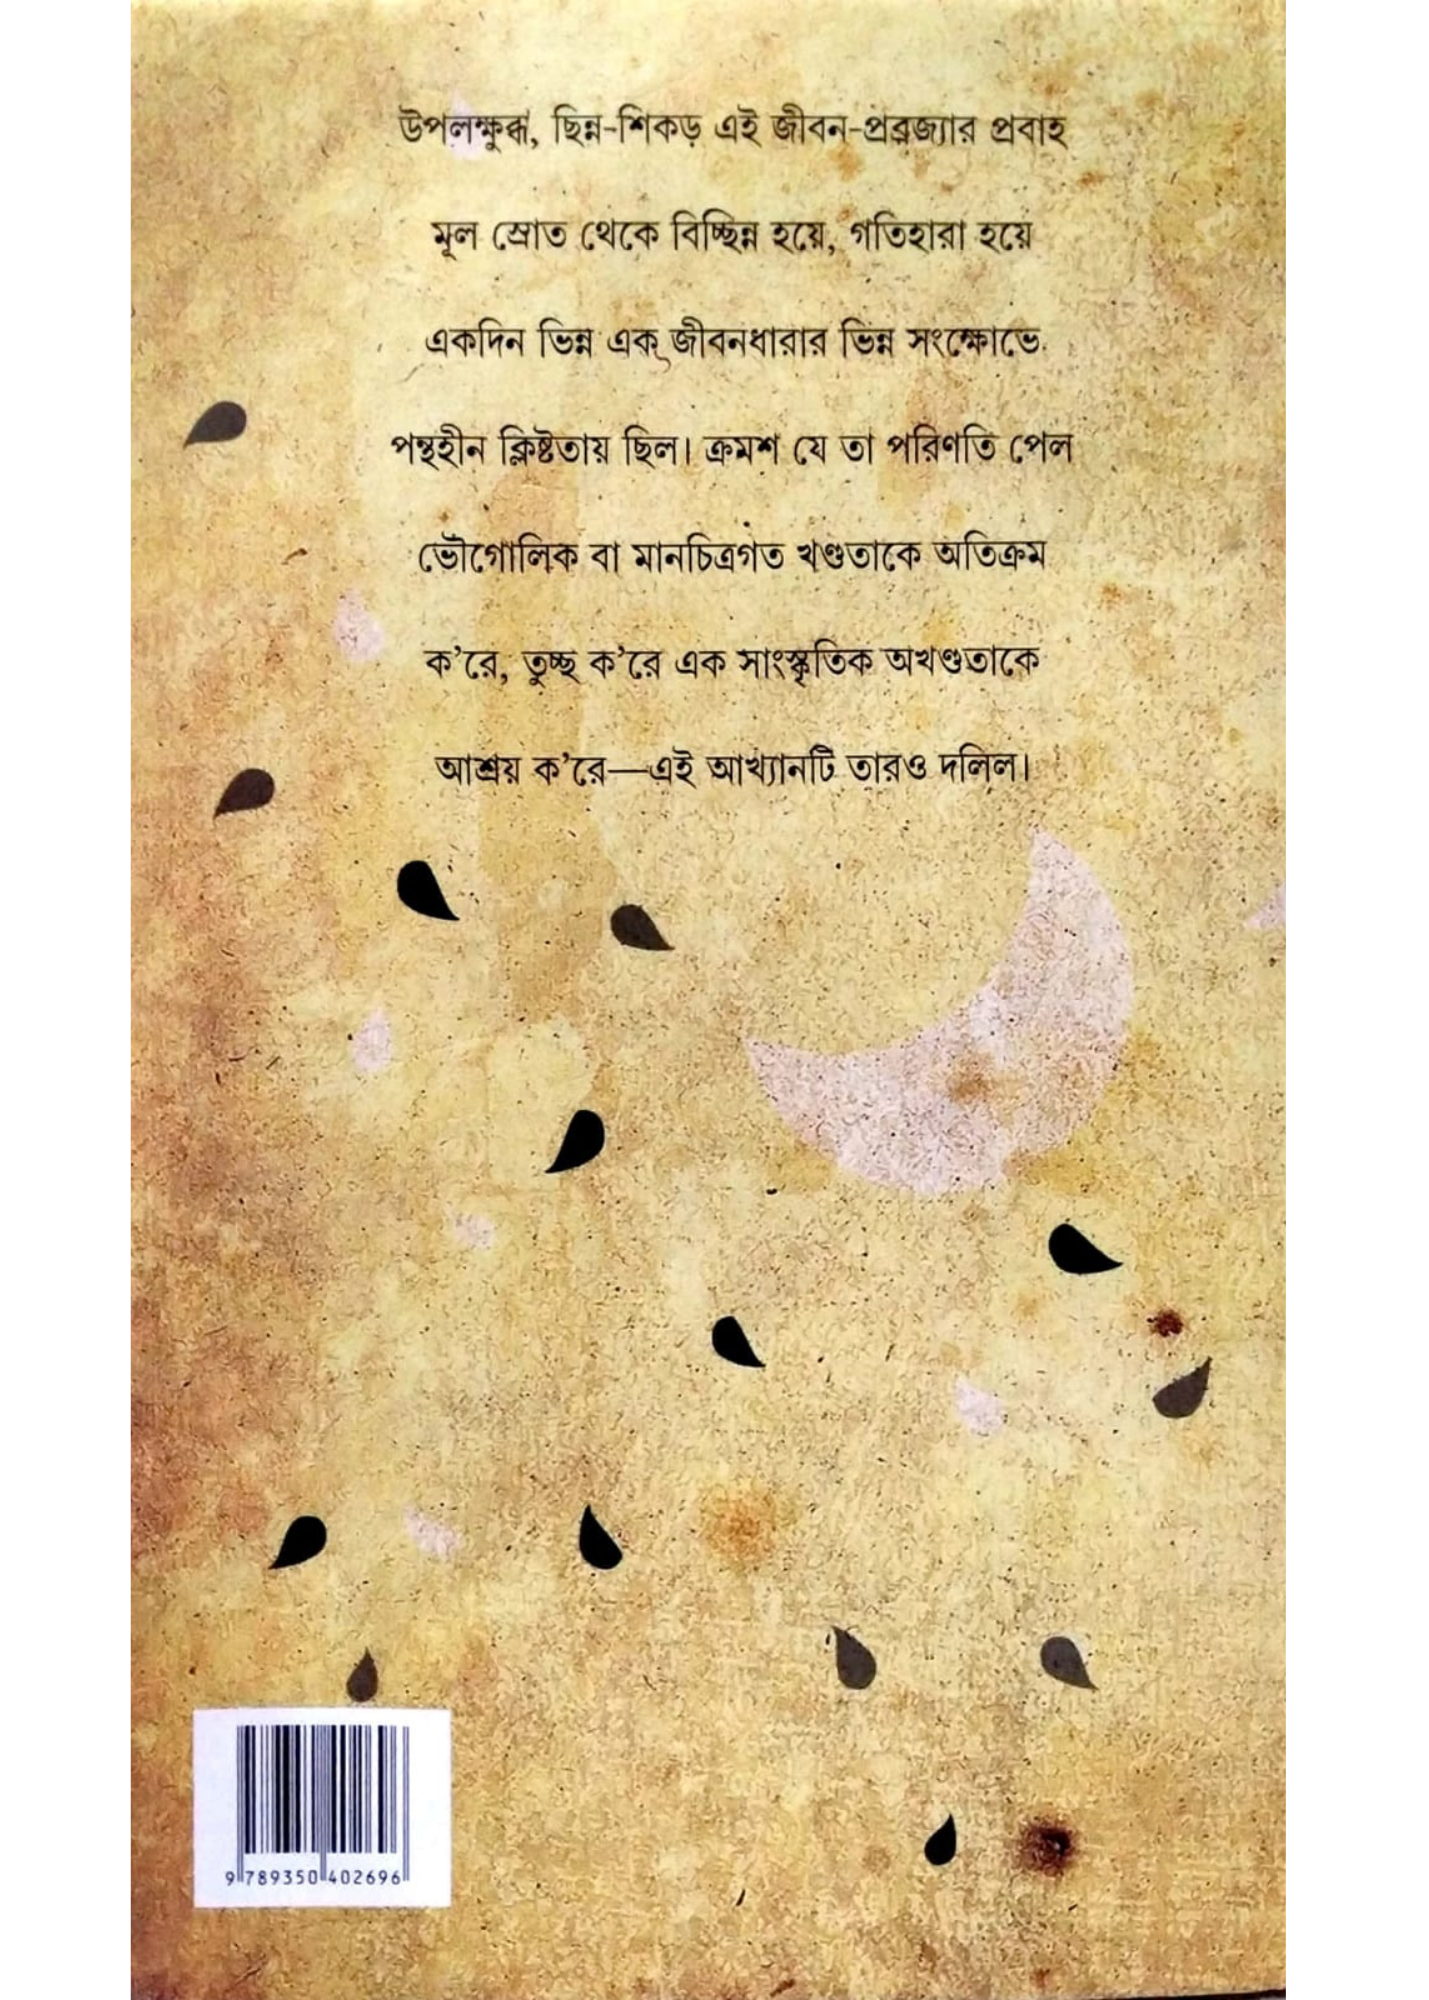 উপলক্ষুব্ধ, ছিন্ন-শিকড় এই জীবন-প্রব্রজ্যার প্রবাহ
মূল স্রোত থেকে বিচ্ছিন্ন হয়ে, গতিহারা হয়ে
একদিন ভিন্ন এক জীবনধারার ভিন্ন সংক্ষোভে
পন্থহীন ক্লিষ্টতায় ছিল। ক্রমশ যে তা পরিণতি পেল
ভৌগোলিক বা মানচিত্রগত খণ্ডতাকে অতিক্রম
ক'রে, তুচ্ছ ক'রে এক সাংস্কৃতিক অখণ্ডতাকে
আশ্রয় ক'রে—এই আখ্যানটি তারও দলিল।
9 789350 402696